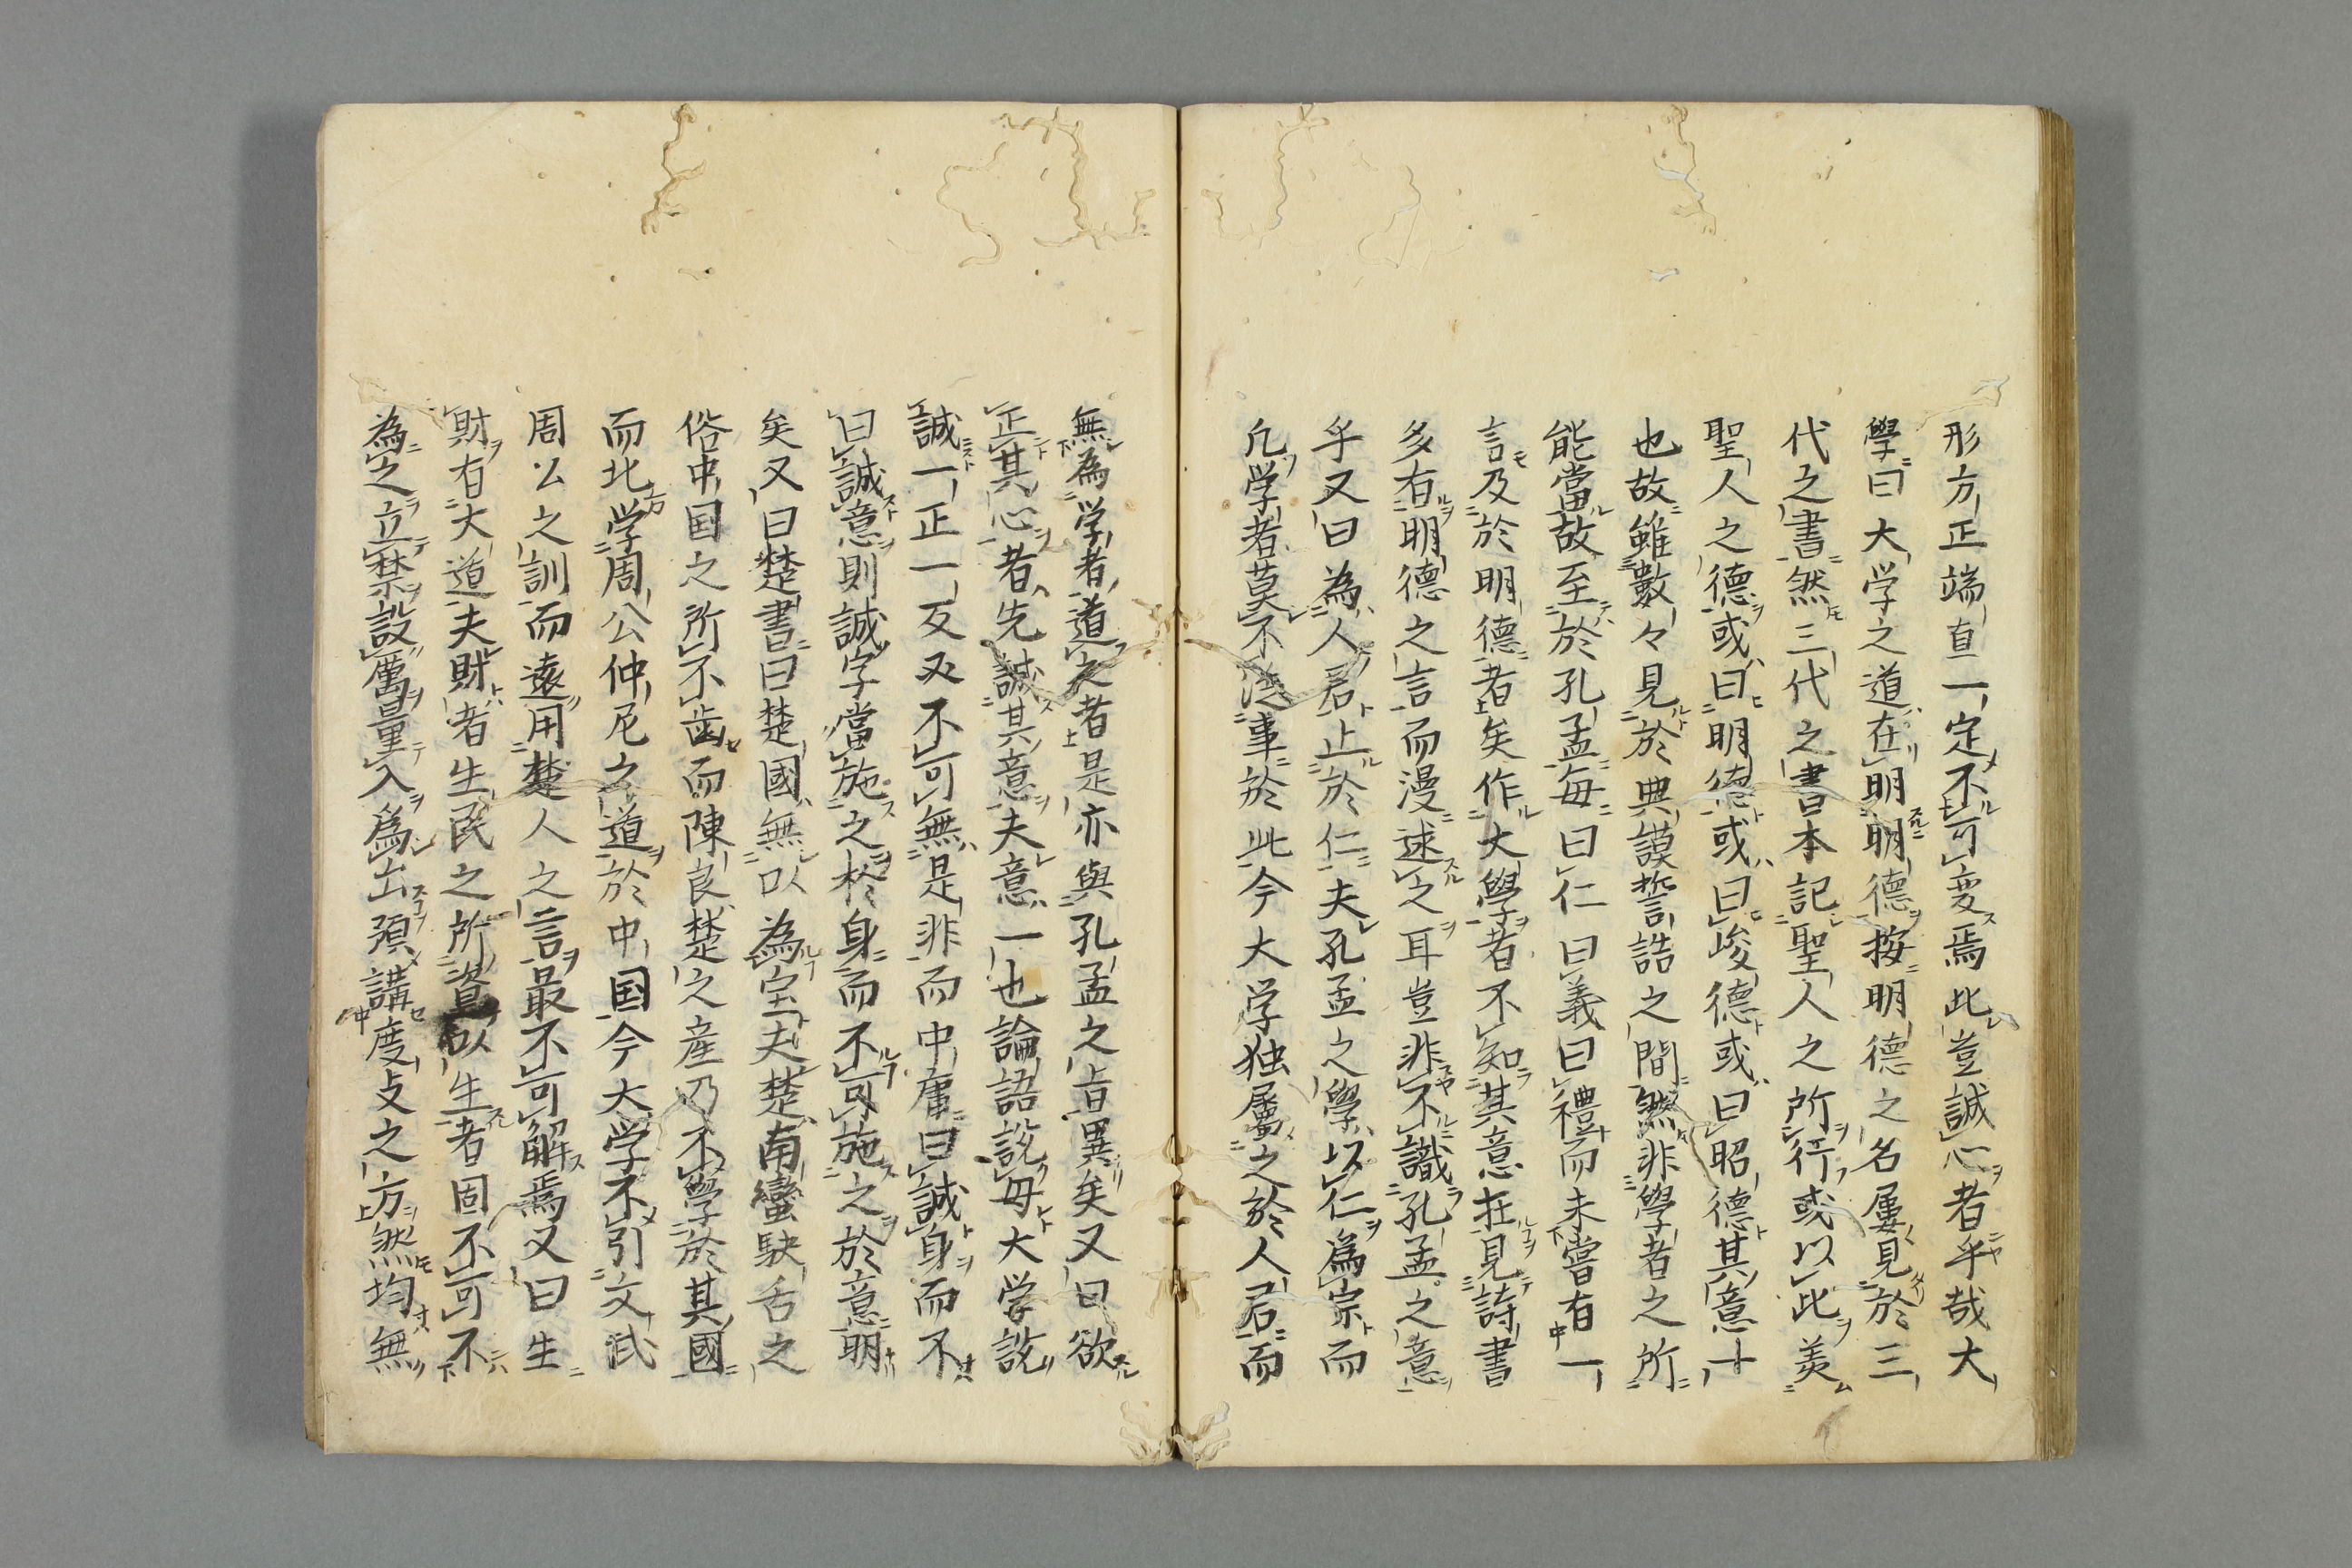 形方正端直一定不可変焉此豈誠心者乎哉大
學曰大学之道在明明德按明德之名屢見於三
代之書然三代之書本記聖人之所行或以此美
聖人之德或曰明德或曰峻德或曰昭德其意十
也故雖數々見於典謨誓誥之間然非學者之所
能當故至於孔孟每曰仁曰義曰禮而未嘗有一
言及於明德者矣作大學者不知其意在見詩書
多有明德之言而漫述之耳豈非不識孔孟之意
乎又曰為人君止於仁夫孔孟之學以仁爲宗而
凡学者莫不從事於此今大学独屬之於人君而
無為学者道之者是亦與孔孟之旨異矣又曰欲
正其心者先誠其意夫意一也論語說毋大学說
誠一正一反又不可無是非而中庸曰誠身而不
曰誠意則誠字當施之於身而不可施之於意明
矣又曰楚書曰楚國無以為宝夫楚南蠻駃舌之
俗中国之所不歯而陳良楚之產乃不學於其國
而北学周公仲尼之道於中国今大学不引文武
周公之訓而遠用楚人之言最不可解焉又曰生
財有大道夫財者生民之所資以生者固不可不
為之立禁設厲量入爲出預講度支之方然均無